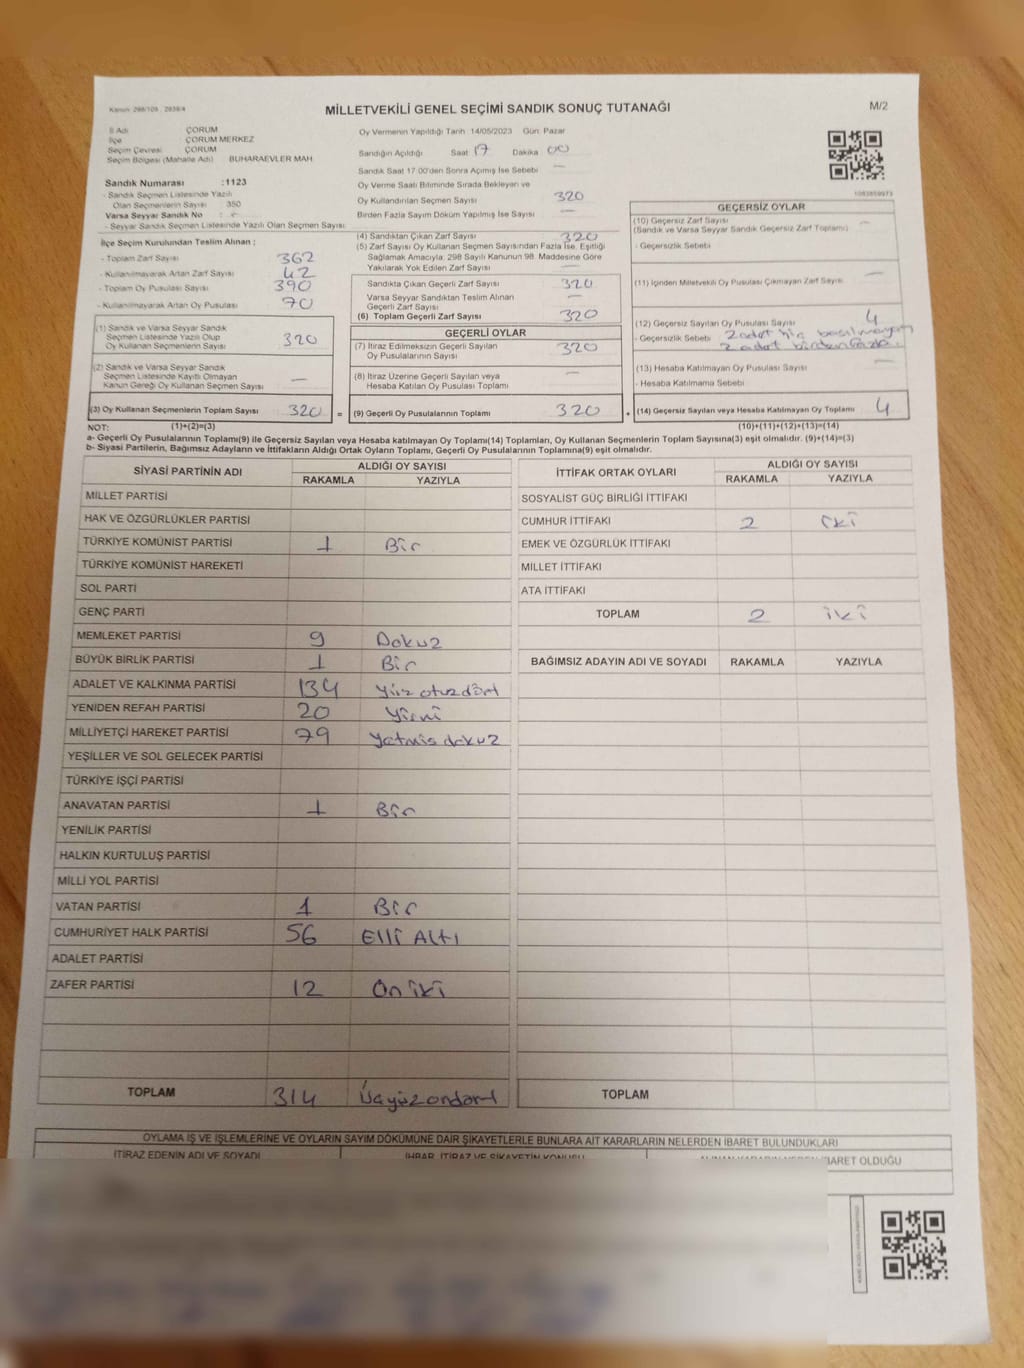 Kanun: 298/105 , 2839/4
MİLLETVEKİLİ GENEL SEÇİMİ SANDIK SONUÇ TUTANAĞI
M/2
İl Adı ÇORUM
İlçe ÇORUM MERKEZ
Seçim Çevresi ÇORUM
Seçim Bölgesi (Mahalle Adı) BUHARAEVLER MAH
Sandık Numarası :1123
- Sandık Seçmen Listesinde Yazılı
Olan Seçmenlerin Sayısı 350
Varsa Seyyar Sandık No : -
- Seyyar Sandık Seçmen Listesinde Yazılı Olan Seçmen Sayısı:
İlçe Seçim Kurulundan Teslim Alınan ;
- Toplam Zarf Sayısı 362
- Kullanılmayarak Artan Zarf Sayısı 42
- Toplam Oy Pusulası Sayısı 390
- Kullanılmayarak Artan Oy Pusulası 70
(1) Sandık ve Varsa Seyyar Sandık
Seçmen Listesinde Yazılı Olup
Oy Kullanan Seçmenlerin Sayısı 320
(2) Sandık ve Varsa Seyyar Sandık
Seçmen Listesinde Kayıtlı Olmayan
Kanun Gereği Oy Kullanan Seçmen Sayısı —
(3) Oy Kullanan Seçmenlerin Toplam Sayısı 320 =
Oy Vermenin Yapıldığı Tarih 14/05/2023 Gün Pazar
Sandığın Açıldığı Saat 17 Dakika 00
Sandık Saat 17:00'den Sonra Açılmış İse Sebebi —
Oy Verme Saati Bitiminde Sırada Bekleyen ve
Oy Kullandırılan Seçmen Sayısı 320
Birden Fazla Sayım Döküm Yapılmış İse Sayısı —
(4) Sandıktan Çıkan Zarf Sayısı 320
(5) Zarf Sayısı Oy Kullanan Seçmen Sayısından Fazla İse, Eşitliği
Sağlamak Amacıyla, 298 Sayılı Kanunun 98. Maddesine Göre
Yakılarak Yok Edilen Zarf Sayısı —
Sandıkta Çıkan Geçerli Zarf Sayısı 320
Varsa Seyyar Sandıktan Teslim Alınan
Geçerli Zarf Sayısı —
(6) Toplam Geçerli Zarf Sayısı 320
GEÇERLİ OYLAR
(7) İtiraz Edilmeksizin Geçerli Sayılan
Oy Pusulalarının Sayısı 320
(8) İtiraz Üzerine Geçerli Sayılan veya
Hesaba Katılan Oy Pusulası Toplamı —
(9) Geçerli Oy Pusulalarının Toplamı 320
GEÇERSİZ OYLAR
(10) Geçersiz Zarf Sayısı
(Sandık ve Varsa Seyyar Sandık Geçersiz Zarf Toplamı) —
- Geçersizlik Sebebi
(11) İçinden Milletvekili Oy Pusulası Çıkmayan Zarf Sayısı —
(12) Geçersiz Sayılan Oy Pusulası Sayısı 4
- Geçersizlik Sebebi 2 adet hiç basılmayan
2 adet birden fazla
(13) Hesaba Katılmayan Oy Pusulası Sayısı —
- Hesaba Katılmama Sebebi
(14) Geçersiz Sayılan veya Hesaba Katılmayan Oy Toplamı 4
NOT: (1)+(2)=(3) (10)+(11)+(12)+(13)=(14)
a- Geçerli Oy Pusulalarının Toplamı(9) ile Geçersiz Sayılan veya Hesaba katılmayan Oy Toplamı(14) Toplamları, Oy Kullanan Seçmenlerin Toplam Sayısına(3) eşit olmalıdır. (9)+(14)=(3)
b- Siyasi Partilerin, Bağımsız Adayların ve İttifakların Aldığı Ortak Oyların Toplamı, Geçerli Oy Pusulalarının Toplamına(9) eşit olmalıdır.
SİYASİ PARTİNİN ADI ALDIĞI OY SAYISI
RAKAMLA YAZIYLA
MİLLET PARTİSİ
HAK VE ÖZGÜRLÜKLER PARTİSİ
TÜRKİYE KOMÜNİST PARTİSİ 1 Bir
TÜRKİYE KOMÜNİST HAREKETİ
SOL PARTİ
GENÇ PARTİ
MEMLEKET PARTİSİ 9 Dokuz
BÜYÜK BİRLİK PARTİSİ 1 Bir
ADALET VE KALKINMA PARTİSİ 134 Yüz otuzdört
YENİDEN REFAH PARTİSİ 20 Yirmi
MİLLİYETÇİ HAREKET PARTİSİ 79 Yetmiş dokuz
YEŞİLLER VE SOL GELECEK PARTİSİ
TÜRKİYE İŞÇİ PARTİSİ
ANAVATAN PARTİSİ 1 Bir
YENİLİK PARTİSİ
HALKIN KURTULUŞ PARTİSİ
MİLLİ YOL PARTİSİ
VATAN PARTİSİ 1 Bir
CUMHURİYET HALK PARTİSİ 56 Elli Altı
ADALET PARTİSİ
ZAFER PARTİSİ 12 On iki
TOPLAM 314 Üçyüzondört
İTTİFAK ORTAK OYLARI ALDIĞI OY SAYISI
RAKAMLA YAZIYLA
SOSYALİST GÜÇ BİRLİĞİ İTTİFAKI
CUMHUR İTTİFAKI 2 iki
EMEK VE ÖZGÜRLÜK İTTİFAKI
MİLLET İTTİFAKI
ATA İTTİFAKI
TOPLAM 2 iki
BAĞIMSIZ ADAYIN ADI VE SOYADI RAKAMLA YAZIYLA
TOPLAM
OYLAMA İŞ VE İŞLEMLERİNE VE OYLARIN SAYIM DÖKÜMÜNE DAİR ŞİKAYETLERLE BUNLARA AİT KARARLARIN NELERDEN İBARET BULUNDUKLARI
İTİRAZ EDENİN ADI VE SOYADI İHBAR, İTİRAZ VE ŞİKAYETİN KONUSU İBARET OLDUĞU